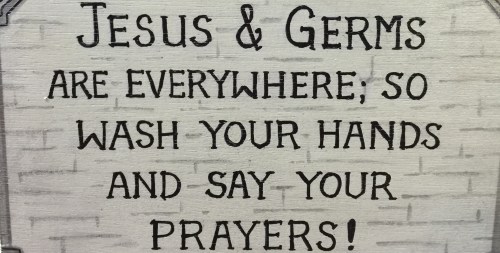 JESUS & GERMS
ARE EVERYWHERE; SO
WASH YOUR HANDS
AND SAY YOUR
PRAYERS!